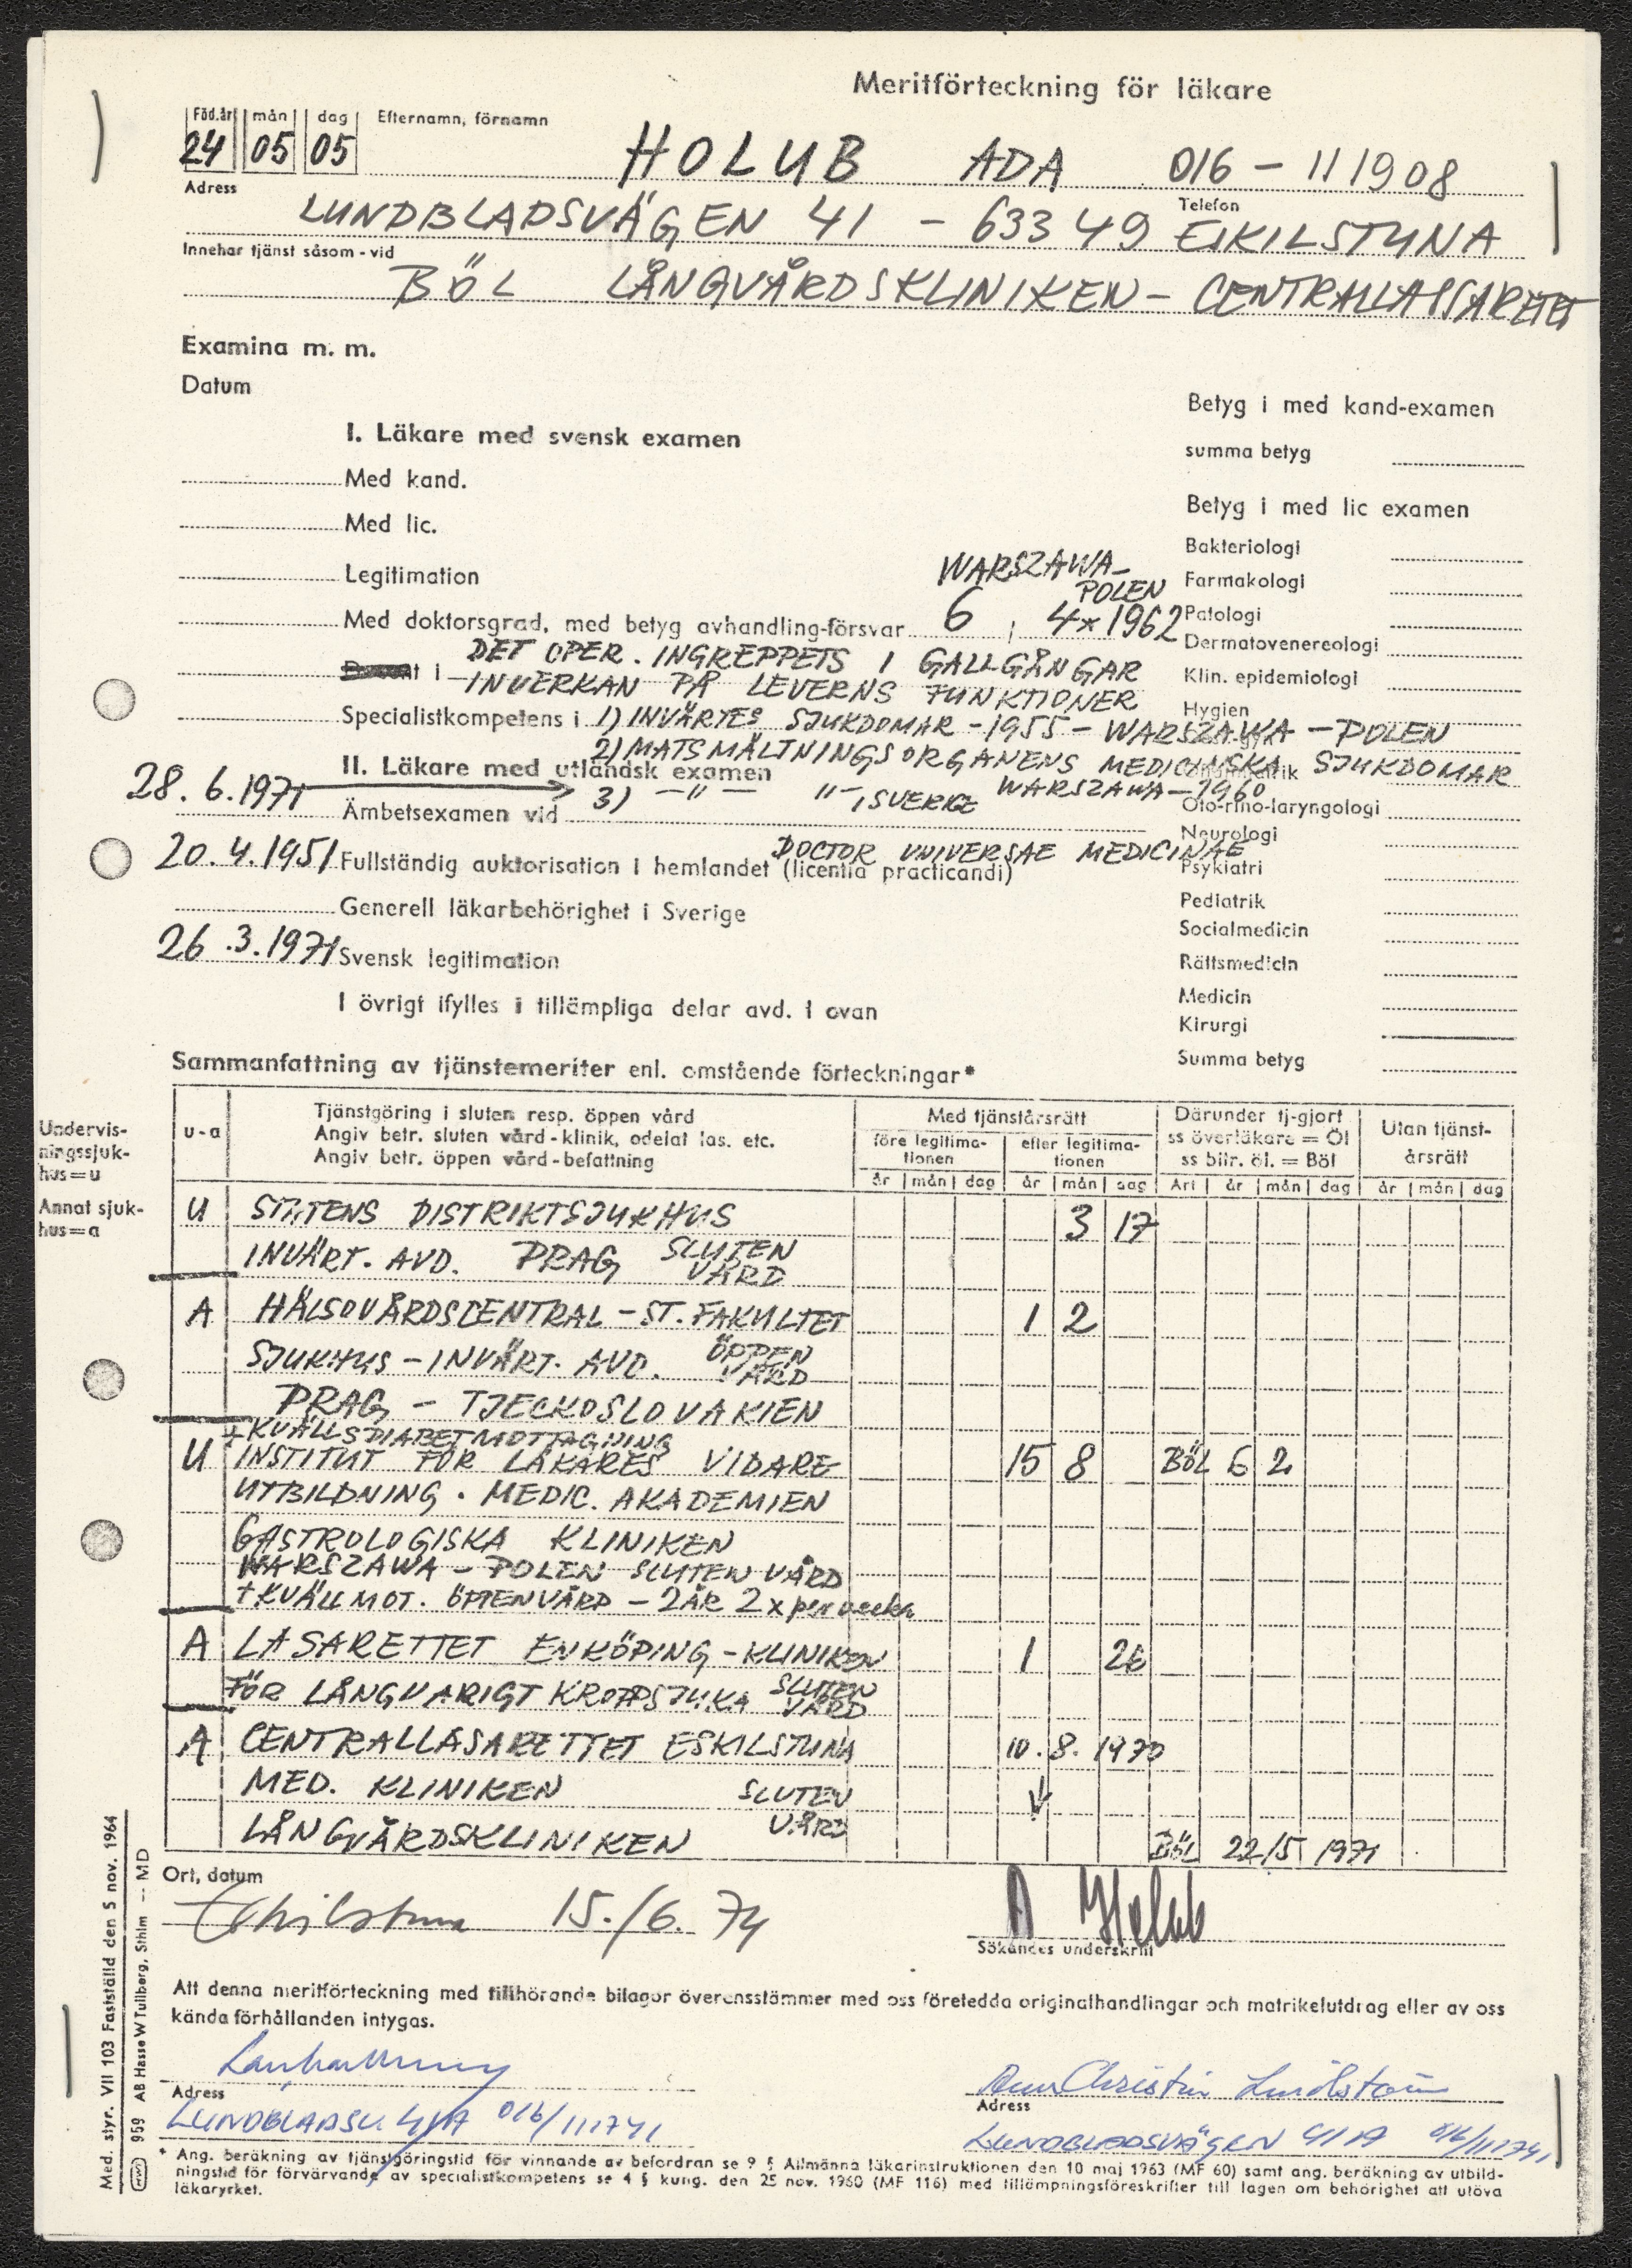 Meritförteckning för läkare
Föd.år mån dag Efternamn, förnamn
24 05 05 HOLUB ADA 016 - 111908
Adress Telefon
LUNDBLADSVÄGEN 41 - 633 49 EIKILSTUNA
Innehar tjänst såsom - vid
BÖL LÅNGVÅRDSKLINIKEN - CENTRALLASARETTET
Examina m. m.
Datum
Betyg i med kand-examen
I. Läkare med svensk examen
summa betyg
Med kand.
Betyg i med lic examen
Med lic.
Bakteriologi
WARSZAWA-
Legitimation
Farmakologi
POLEN
Med doktorsgrad, med betyg avhandling-försvar 6 ; 4 x 1962
Patologi
Dermatovenereologi
DET OPER. INGREPPETS I GALLGÅNGAR
t i INVERKAN PÅ LEVERNS FUNKTIONER
Klin. epidemiologi
Hygien
Specialistkompetens i 1) INVÄRTES SJUKDOMAR - 1955 - WARSZAWA - POLEN
2) MATSMÄLTNINGSORGANENS MEDICINSKA SJUKDOMAR
II. Läkare med utländsk examen
WARSZAWA - 1960
28. 6. 1971 3) -"- "-, SVERGE
Ämbetsexamen vid
Oto-rino-laryngologi
Neurologi
DOCTOR UNIVERSAE MEDICINAE
20. 4. 1951 Fullständig auktorisation i hemlandet (licentia practicandi)
Psykiatri
Generell läkarbehörighet i Sverige
Pediatrik
Socialmedicin
26 .3. 1971 Svensk legitimation
Rättsmedicin
Medicin
I övrigt ifylles i tillämpliga delar avd. I ovan
Kirurgi
Summa betyg
Sammanfattning av tjänstemeriter enl. omstående förteckningar*
Undervis-
ningssjuk-
hus=u
Annat sjuk-
hus=a
u-a
Tjänstgöring i sluten resp. öppen vård
Angiv betr. sluten vård - klinik, odelat las. etc.
Angiv betr. öppen vård - befattning
Med tjänstårsrätt
före legitima-
tionen
efter legitima-
tionen
Därunder tj-gjort
ss överläkare = Öl
ss bitr. öl. = Böl
Utan tjänst-
årsrätt
år mån dag år mån dag Art år mån dag år mån dag
U STATENS DISTRIKTSJUKHUS 3 17
INVÄRT. AVD. PRAG SLUTEN
VÅRD
A HÄLSOVÅRDSCENTRAL - ST. FAKULTET 1 2
SJUKHUS - INVÄRT. AVD. ÖPPEN
VÅRD
PRAG - TJECKOSLOVAKIEN
+ KVÄLLSDIABETMOTTAGNING
U INSTITUT FÖR LÄKARES VIDARE 15 8 BÖL 6 2
UTBILDNING . MEDIC. AKADEMIEN
GASTROLOGISKA KLINIKEN
WARSZAWA - POLEN SLUTEN VÅRD
+ KVÄLLMOT. ÖPPENVÅRD - 2 ÅR 2 x per vecka
A LASARETTET ENKÖPING - KLINIKEN 1 26
FÖR LÅNGVARIGT KROPPSJUKA SLUTEN
VÅRD
A CENTRALLASARETTET ESKILSTUNA 10. 8. 1970
MED. KLINIKEN SLUTEN
VÅRD
LÅNGVÅRDSKLINIKEN BÖL 22/5 1971
Ort, datum
Eskilstuna 15./6. 74 A Holub
Sökandes underskrift
Att denna meritförteckning med tillhörande bilagor överensstämmer med oss företedda originalhandlingar och matrikelutdrag eller av oss
kända förhållanden intygas.
Ann Christin Lindström
Adress Adress
LUNDBLADSV. 41A 016/111741
LUNDBLADSVÄGEN 41A 016/111741
* Ang. beräkning av tjänstgöringstid för vinnande av befordran se 9 § Allmänna läkarinstruktionen den 10 maj 1963 (MF 60) samt ang. beräkning av utbild-
ningstid för förvärvande av specialistkompetens se 4 § kung. den 25 nov. 1960 (MF 116) med tillämpningsföreskrifter till lagen om behörighet att utöva
läkaryrket.
Med. styr. VII 103 Fastställd den 5 nov. 1964
959 AB Hasse W Tullberg, Sthlm -- MD